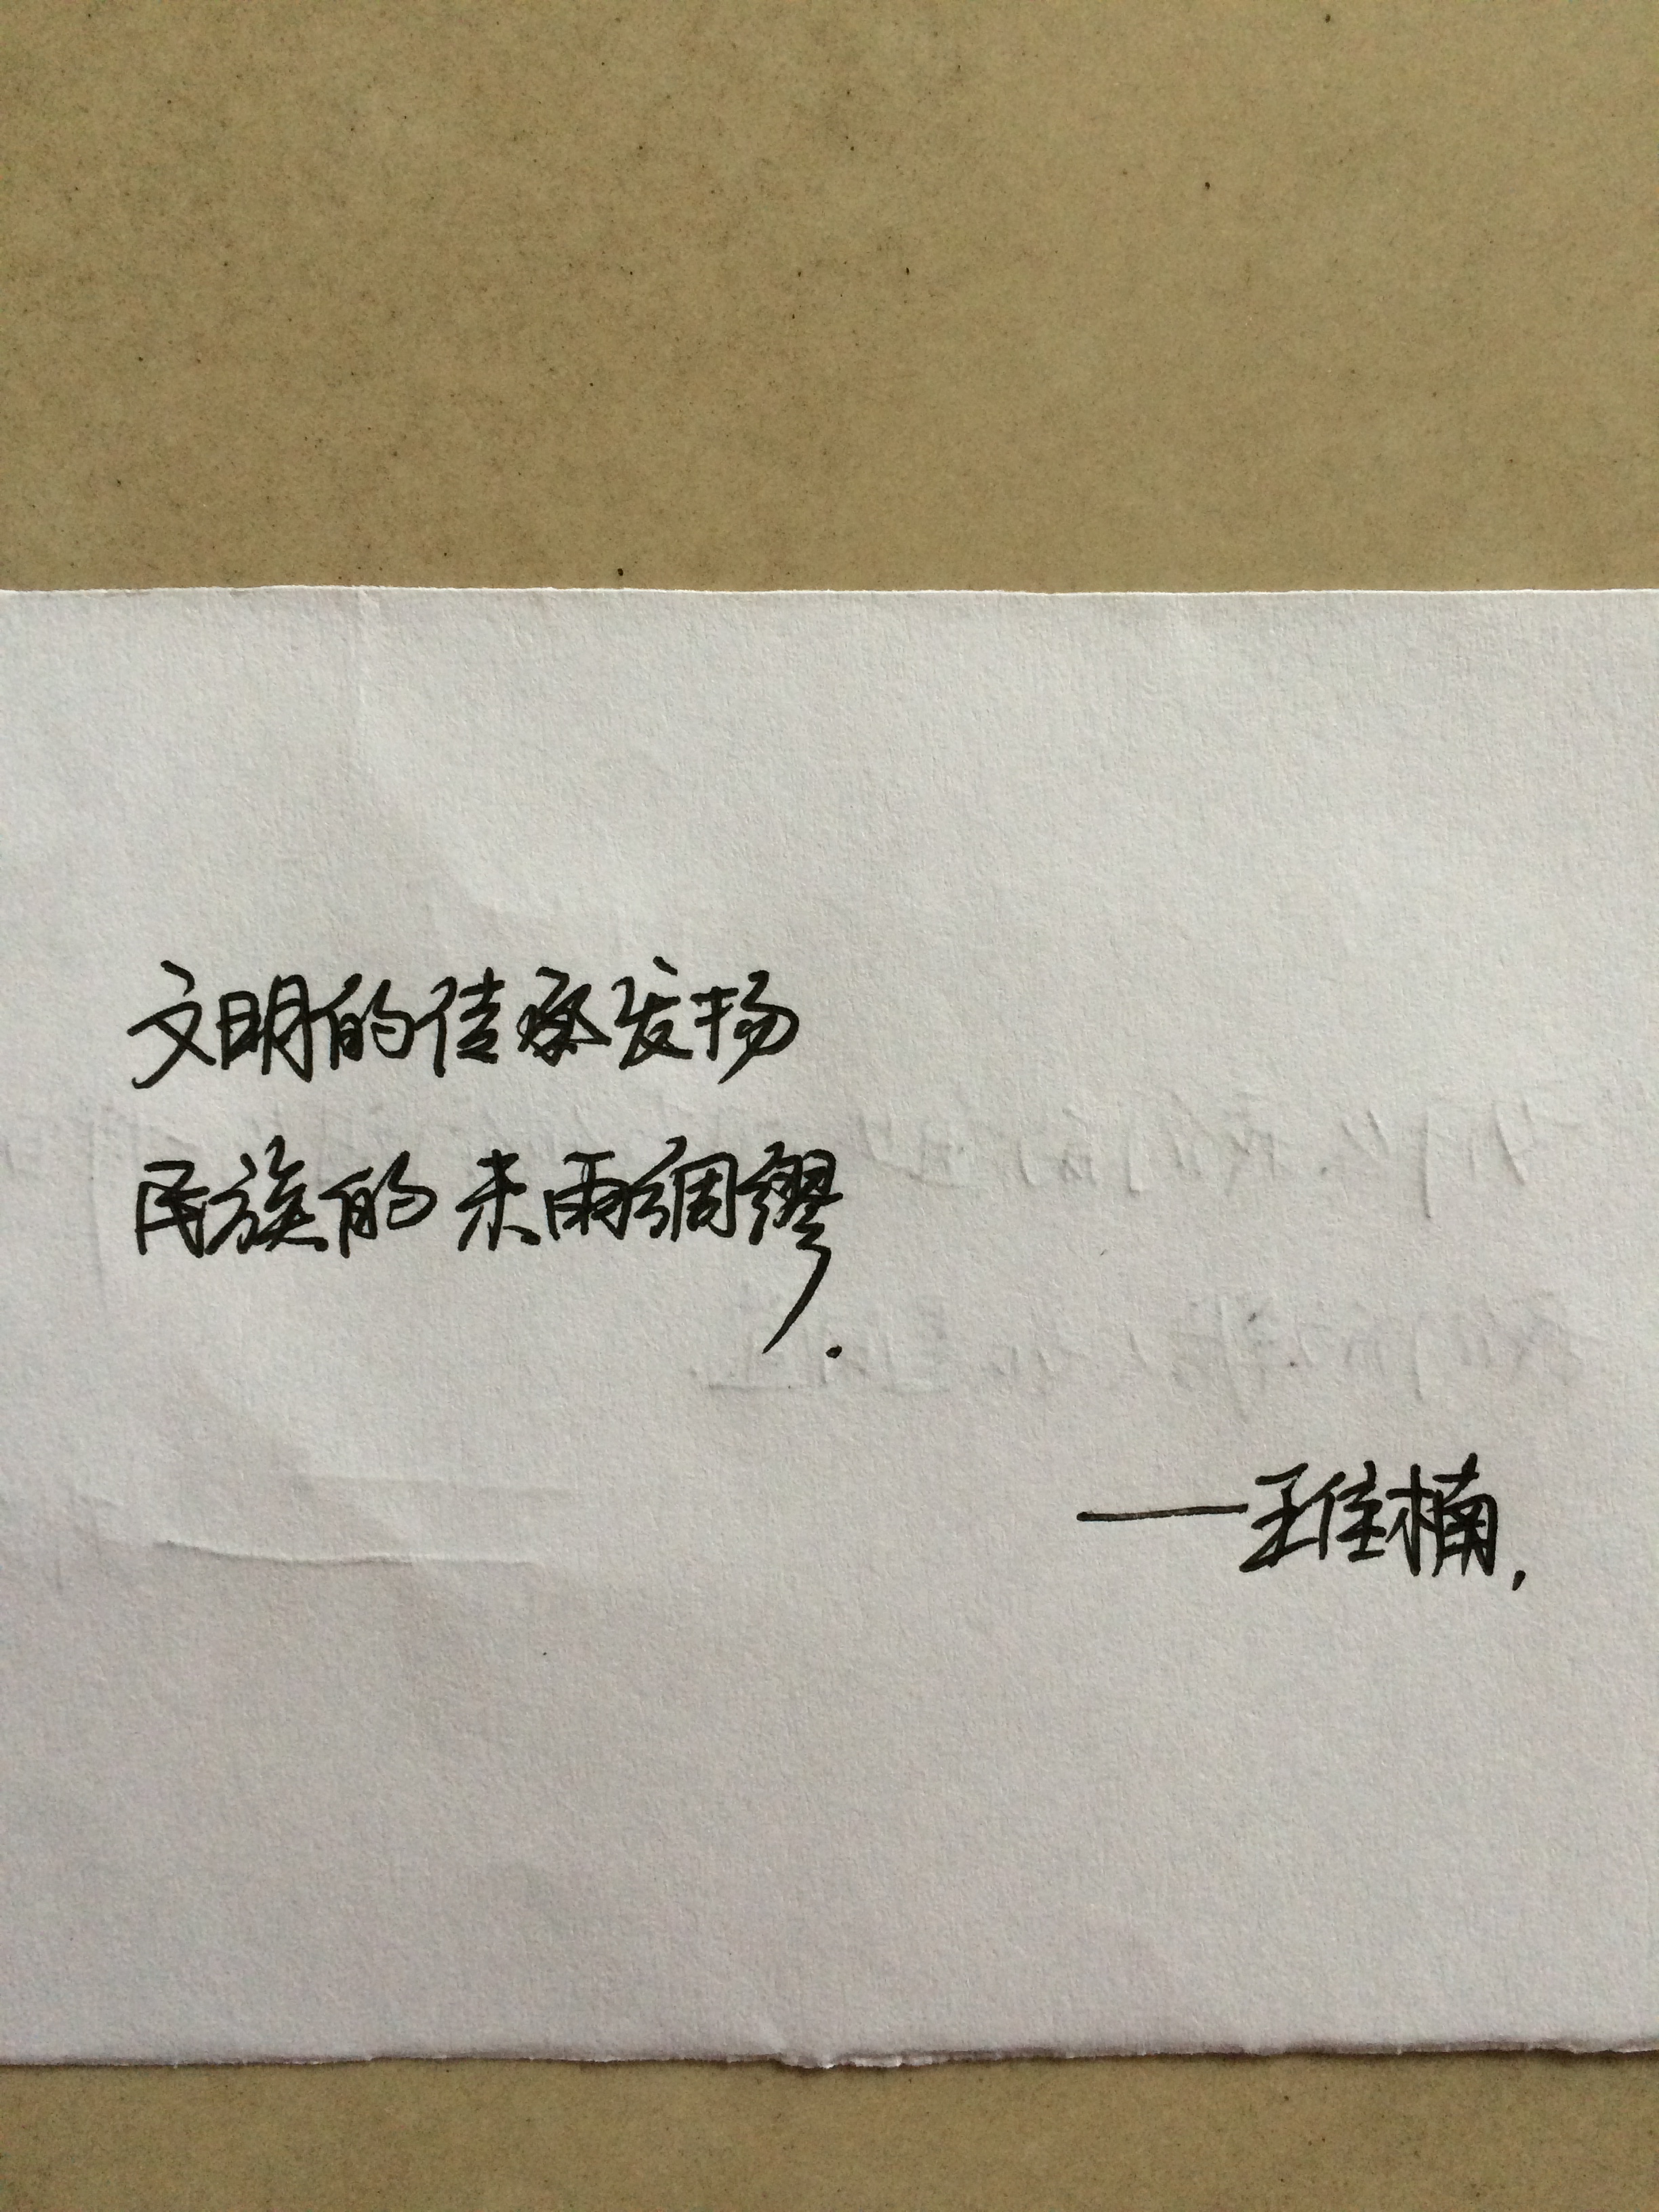 文明的传承发扬
民族的未雨绸缪.
——王佳楠.